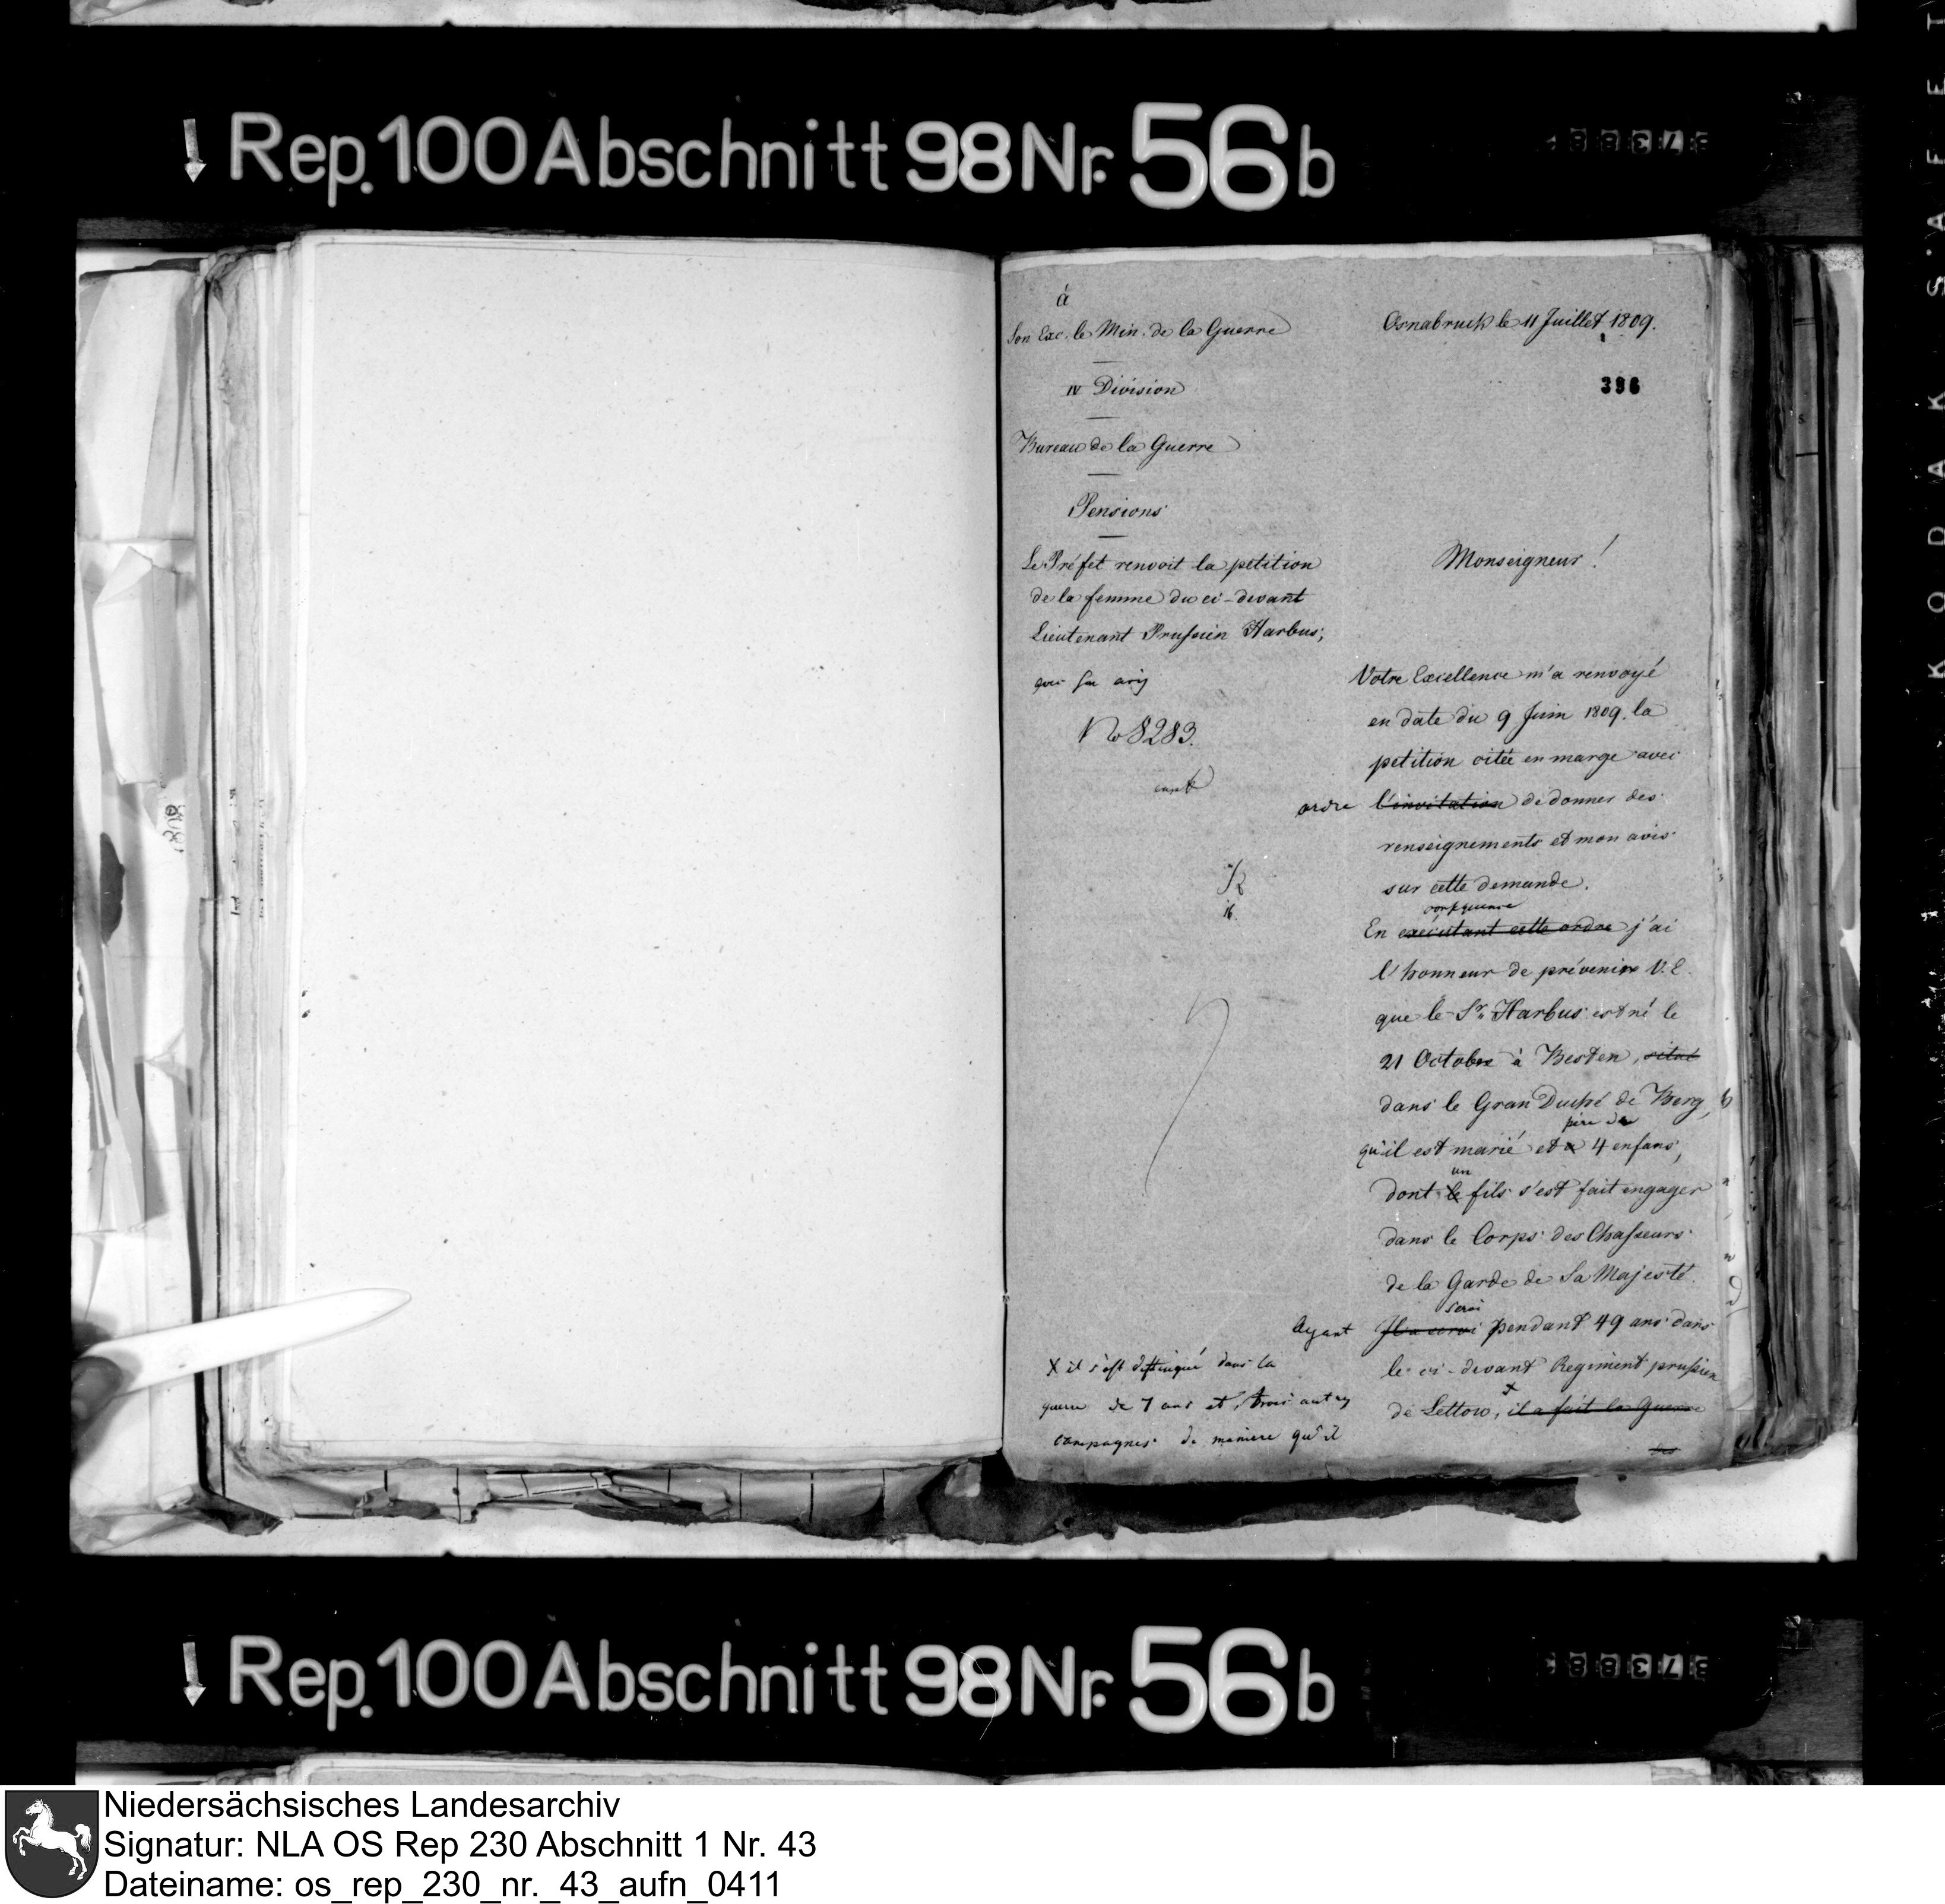 Rep. 100 Abschnitt 98 Nr. 56 b
à
Son Exc. le Min. de la Guerre
IV Division
Bureau de la Guerre
Pensions
Le Préfet renvoit la petition
de la femme du ci-devant
Lieutenant Prussien Harbus,
avis
No 8283.
Osnabruck le 11 Juillet 1809.
396
Monseigneur!
Votre Excellence m'a renvoyé
en date du 9 Juin 1809. la
petition citée en marge avec
ordre l'invitation de donner des
renseignements et mon avis
sur cette demande.
consequence
En exécutant cette ordre j'ai
l'honneur de prévenire V. E.
que le Sr. Harbus est né le
21 Octobre à Besten, situé
dans le Gran Duché de Berg,
père de
qu'il est marié et a 4 enfans,
un
dont le fils s'est fait engager
dans le Corps des Chasseurs
de la Garde de Sa Majesté.
servi
Ayant Il a servi pendant 49 ans dans
le ci-devant Regiment prussien
de Lettow, x il a fait la Guerre
des
x il s'est distingué dans la
guerre de 7 ans et trois autres
campagnes de maniere qu'il
Rep. 100 Abschnitt 98 Nr. 56 b
Niedersächsisches Landesarchiv
Signatur: NLA OS Rep 230 Abschnitt 1 Nr. 43
Dateiname: os_rep_230_nr._43_aufn_0411